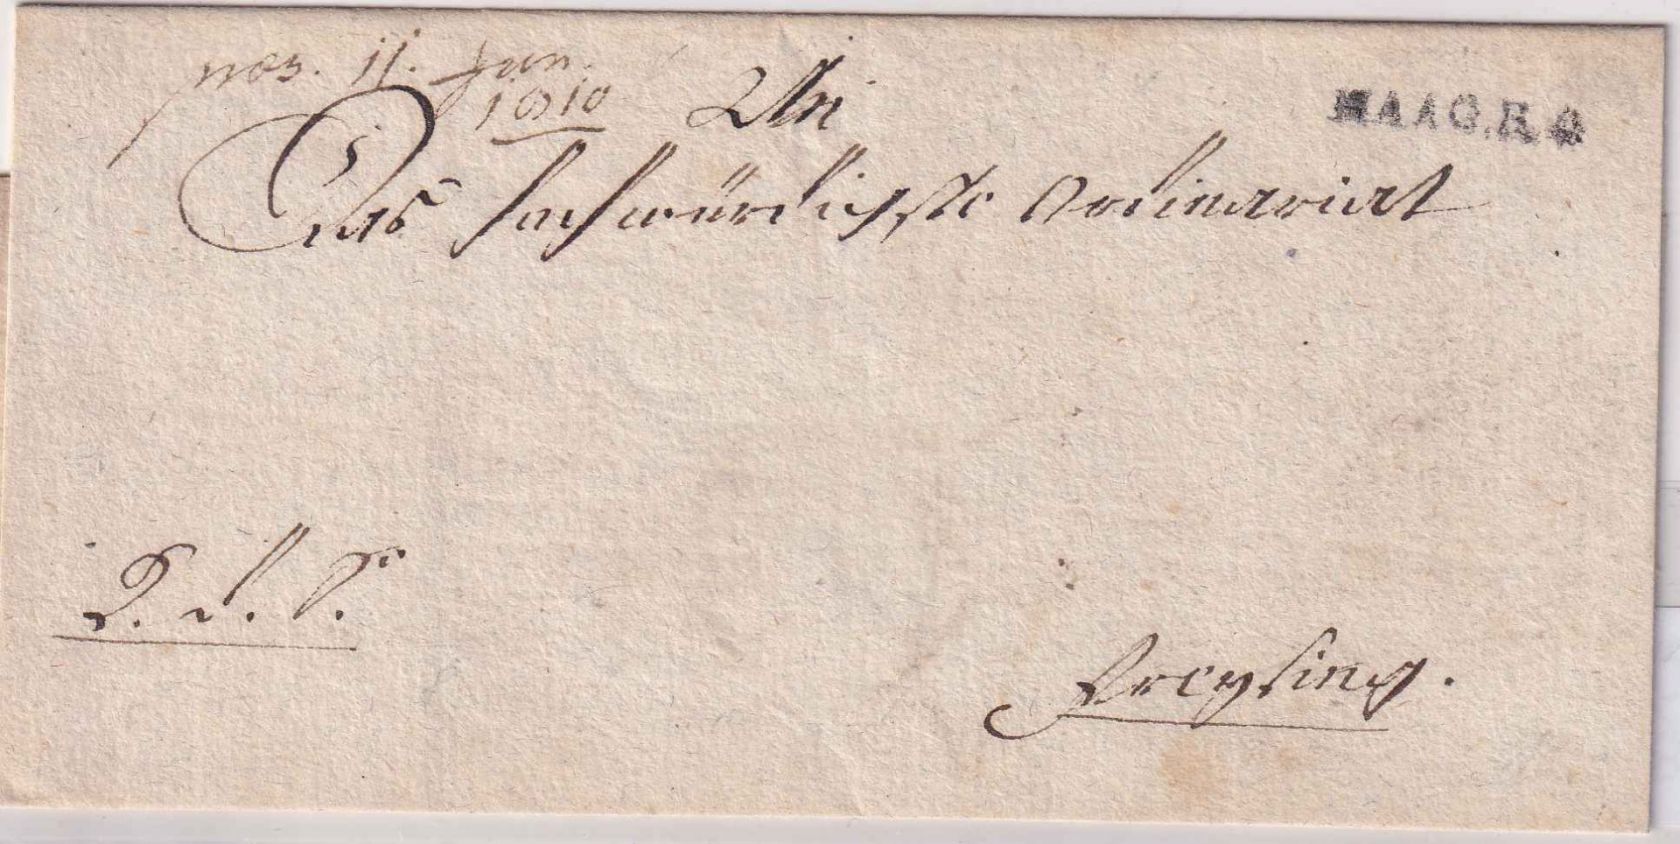 praes. 11. Jan.
1810
An
HAAG. R. 4
Das hochwürdigste Ordinariat
D. d. S.
Freysing.